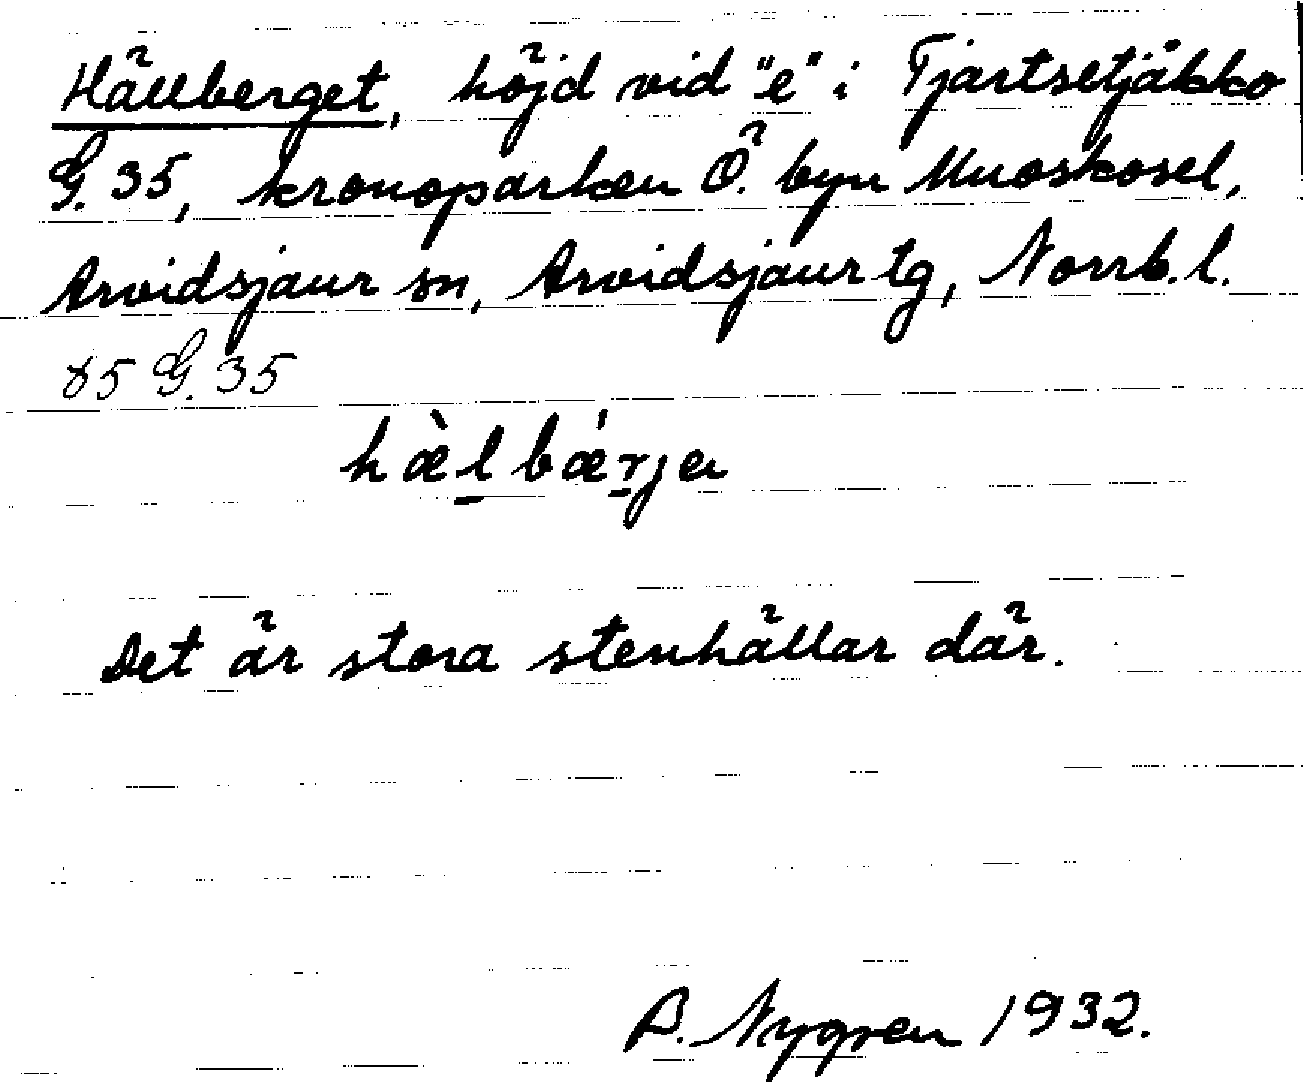 Hällberget, höjd vid "e" i Tjartsetjåkko
G. 35, kronoparken Ö. byn Muoskosel,
Arvidsjaur sn, Arvidsjaur tg, Norrb. l.
85 G. 35
hæ̀l̲bǽr̲ja
Det är stora stenhällar där.
B. Nygren 1932.